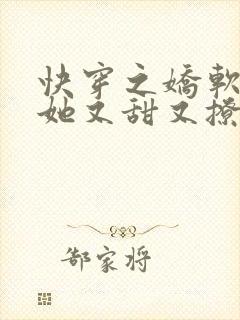 快穿之嬌軟
她又甜又撩
郜家将